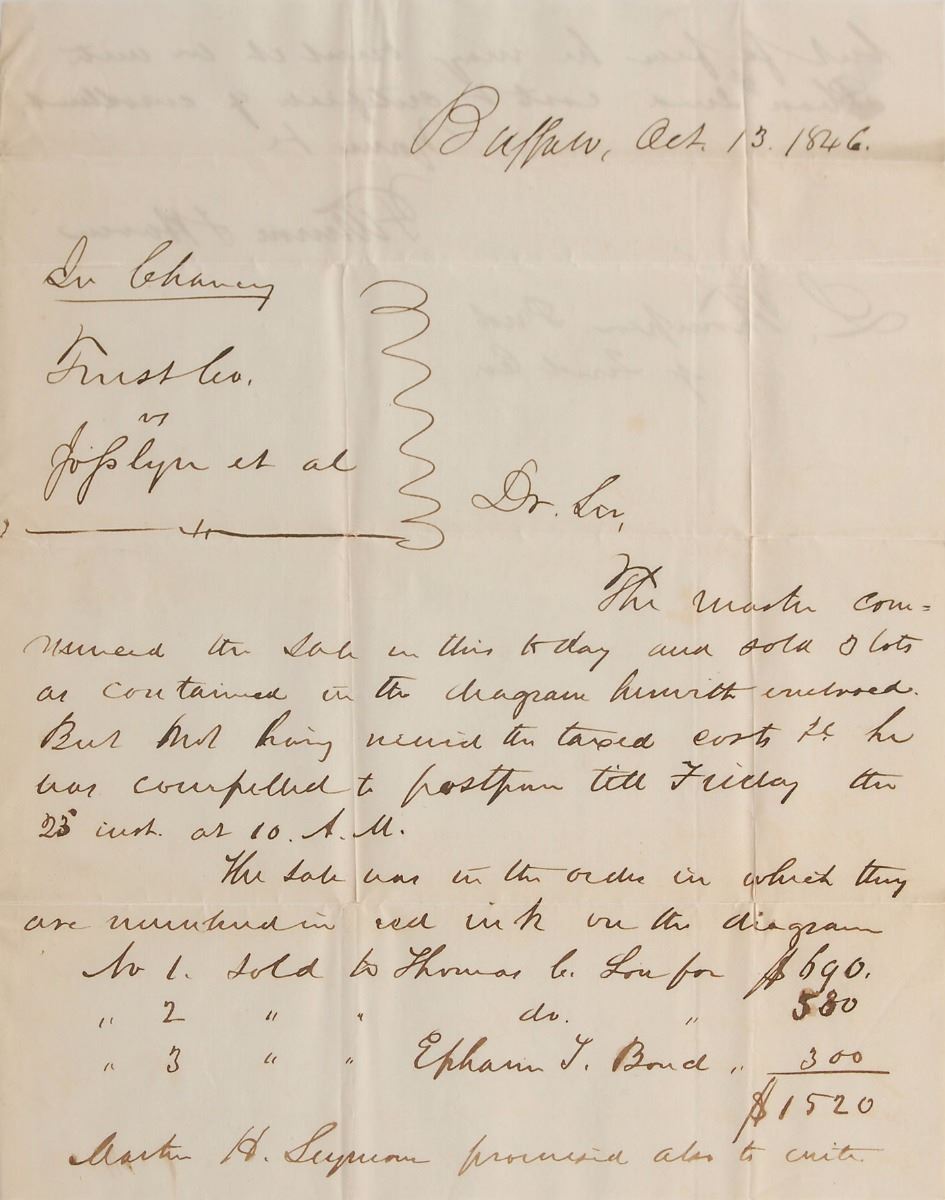 Buffalo, Oct. 13. 1846.
In Chancery
Trust Co.
vs
Josslyn et al
Dr. Sir,
The master com=
menced the sale in this to day and sold 3 lots
as contained in the diagram herewith enclosed.
But not having received the taxed costs &c he
was compelled to postpone till Friday the
23 inst. at 10. A. M.
The sale was in the order in which they
are numbered in red ink on the diagram
No 1. sold to Thomas C. for $690.
" 2 " " do. " 530
" 3 " " Ephraim T. Bond " 300
$1520
Master H. Seymour promised also to write